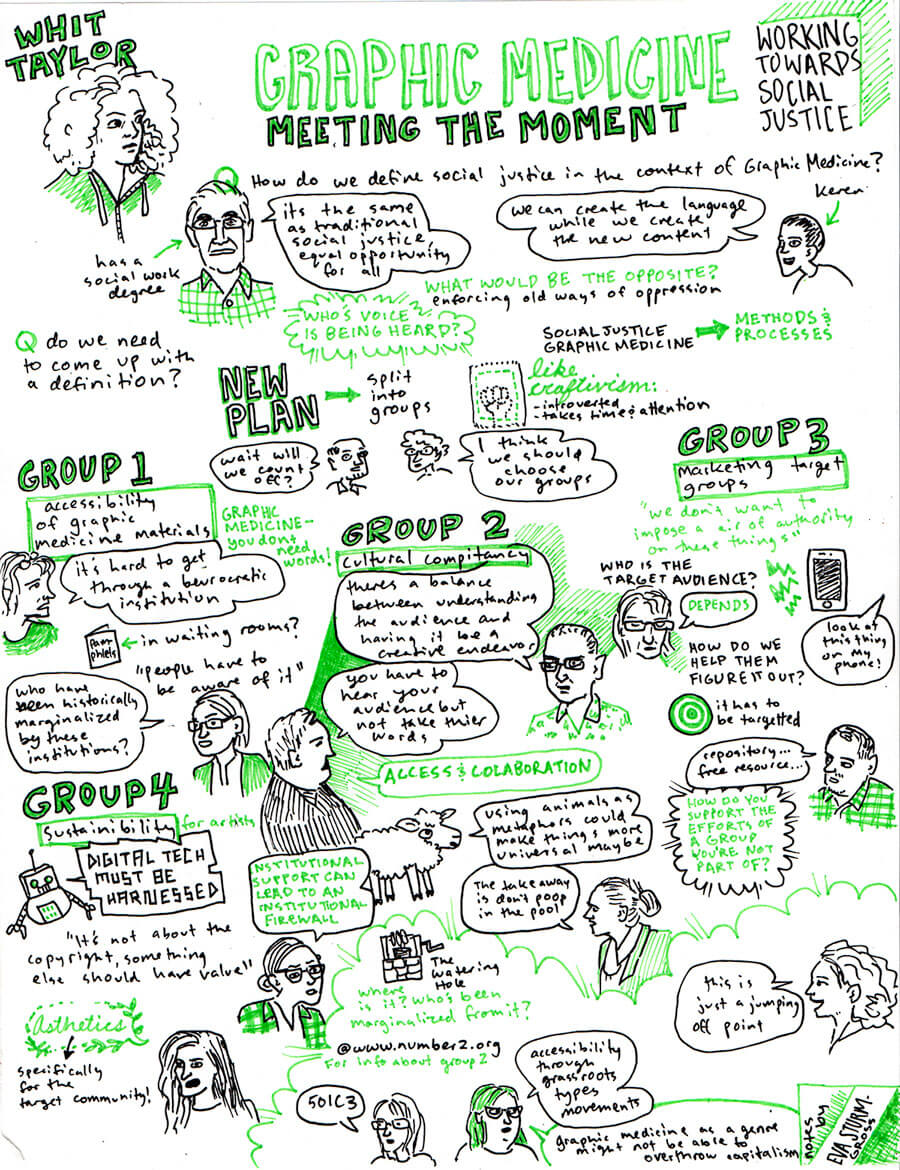 WHIT
TAYLOR
GRAPHIC MEDICINE
MEETING THE MOMENT
WORKING
TOWARDS
SOCIAL
JUSTICE
Q How do we define social justice in the context of Graphic Medicine?
has a
social work
degree
its the same
as traditional
social justice,
equal opportunity
for all
we can create the language
while we create
the new content
Keren
WHAT WOULD BE THE OPPOSITE?
enforcing old ways of oppression
WHO'S VOICE
IS BEING HEARD?
SOCIAL JUSTICE
GRAPHIC MEDICINE
METHODS &
PROCESSES
Q do we need
to come up with
a definition?
NEW
PLAN
split
into
groups
like
craftivism:
- introverted
- takes time & attention
wait will
we count
off?
I think
we should
choose
our groups
GROUP 1
accessibility
of graphic
medicine materials
GRAPHIC
MEDICINE-
you dont
need
words!
it's hard to get
through a beurocratic
institution
pam
phlets
in waiting rooms?
"people have to
be aware of it"
who have
been historically
marginalized
by these
institutions?
GROUP 2
cultural compitancy
theres a balance
between understanding
the audience and
having it be a
creative endeavor
you have to
hear your
audience but
not take thier
words
ACCESS & COLABORATION
using animals as
metaphors could
make things more
universal maybe
The take away
is don't poop
in the pool
The
Watering
Hole
where
is it? Who's been
marginalized from it?
@www.number2.org
For info about group 2
GROUP 3
marketing target
groups
"we don't want to
impose a air of authority
on these things"
WHO IS THE
TARGET AUDIENCE?
DEPENDS
look at
this thing
on my
phone!
HOW DO WE
HELP THEM
FIGURE IT OUT?
it has to
be targetted
repository...
free resource...
HOW DO YOU
SUPPORT THE
EFFORTS OF
A GROUP
YOU'RE NOT
PART OF?
GROUP 4
sustainibility for artists
DIGITAL TECH
MUST BE
HARNESSED
INSTITUTIONAL
SUPPORT CAN
LEAD TO AN
INSTITUTIONAL
FIREWALL
"It's not about the
copyright, something
else should have value"
Asthetics
specifically
for the
target community!
this is
just a jumping
off point
501C3
accessibility
through
grassroots
types
movements
graphic medicine as a genre
might not be able to
overthrow capitalism
notes by
EVA STURM-
GROSS